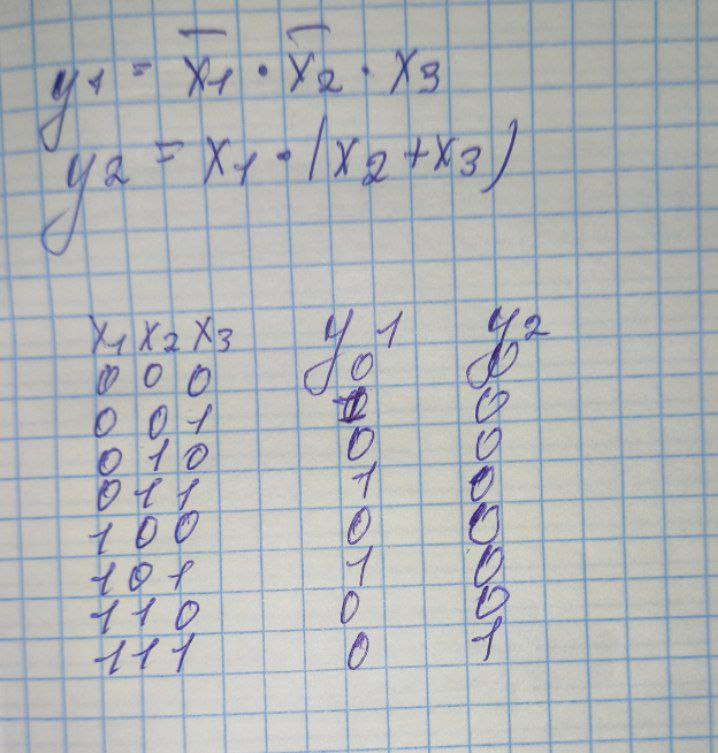 y1 = x̅1 · x̅2 · x3
y2 = x1 · (x2 + x3)
x1 x2 x3 y1 y2
0 0 0 0 0
0 0 1 1 0
0 1 0 0 0
0 1 1 1 0
1 0 0 0 0
1 0 1 1 0
1 1 0 0 0
1 1 1 0 1